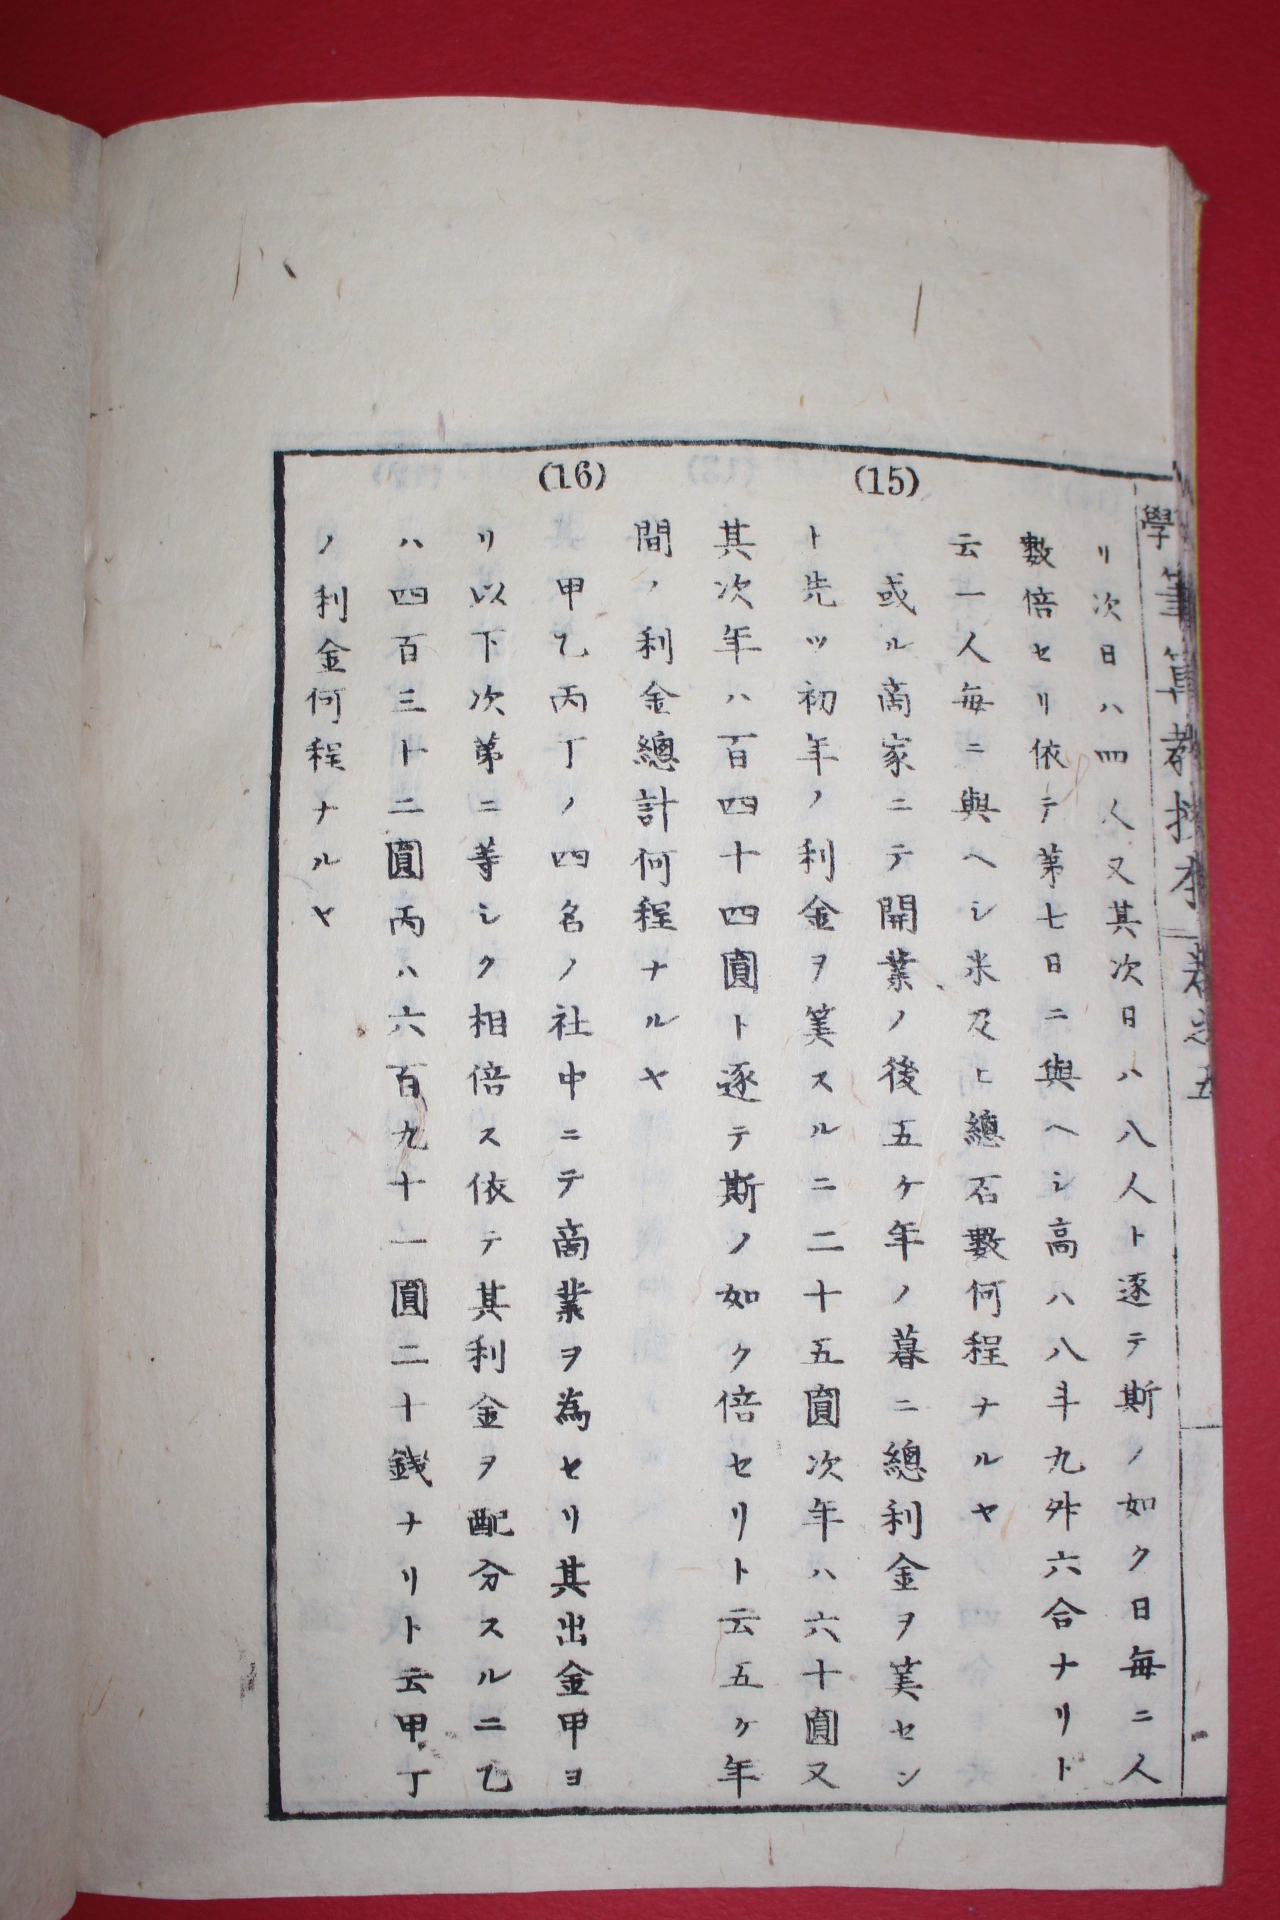 學筆算教授本 卷之五
リ次日ハ四人又其次日ハ八人ト逐テ斯ノ如ク日毎ニ人
數倍セリ依テ第七日ニ與ヘシ高ハ八斗九升六合ナリト
云一人毎ニ與ヘシ米及ヒ總石數何程ナルヤ
(15)
或ル商家ニテ開業ノ後五ケ年ノ暮ニ總利金ヲ筭セン
ト先ツ初年ノ利金ヲ筭スルニ二十五圓次年ハ六十圓又
其次年ハ百四十四圓ト逐テ斯ノ如ク倍セリト云五ケ年
間ノ利金總計何程ナルヤ
(16)
甲乙丙丁ノ四名ノ社中ニテ商業ヲ為セリ其出金甲ヨ
リ以下次第ニ等シク相倍ス依テ其利金ヲ配分スルニ乙
ハ四百三十二圓丙ハ六百九十一圓二十銭ナリト云甲丁
ノ利金何程ナルヤ